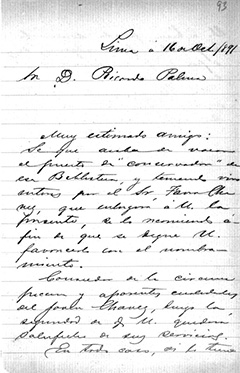 93
Lima á 16 de Oct/891
Sr D. Ricardo Palma
Muy estimado amigo:
Sé que acaba de vacar
el puesto de "conservador" de
esa Biblioteca, y teniendo vivo
interes por el Sr
que entregará á U. la
presente, se lo recomiendo á
fin de que se digne U.
favorecerlo con el nombra-
miento.
Conocedor de la
y aparentes cualidades
del joven Chavez, tengo la
seguridad de q U. quedará
satisfecho de sus servicios.
En todo caso, si lo tiene